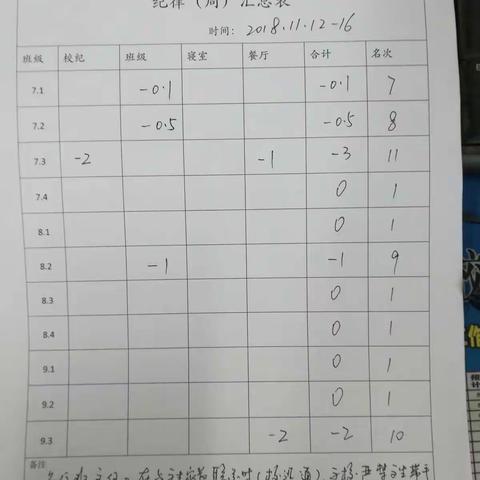 纪律（周）汇总表
时间：2018.11.12-16
班级 校纪 班级 寝室 餐厅 合计 名次
7.1 -0.1 -0.1 7
7.2 -0.5 -0.5 8
7.3 -2 -1 -3 11
7.4 0 1
8.1 0 1
8.2 -1 -1 9
8.3 0 1
8.4 0 1
9.1 0 1
9.2 0 1
9.3 -2 -2 10
备注